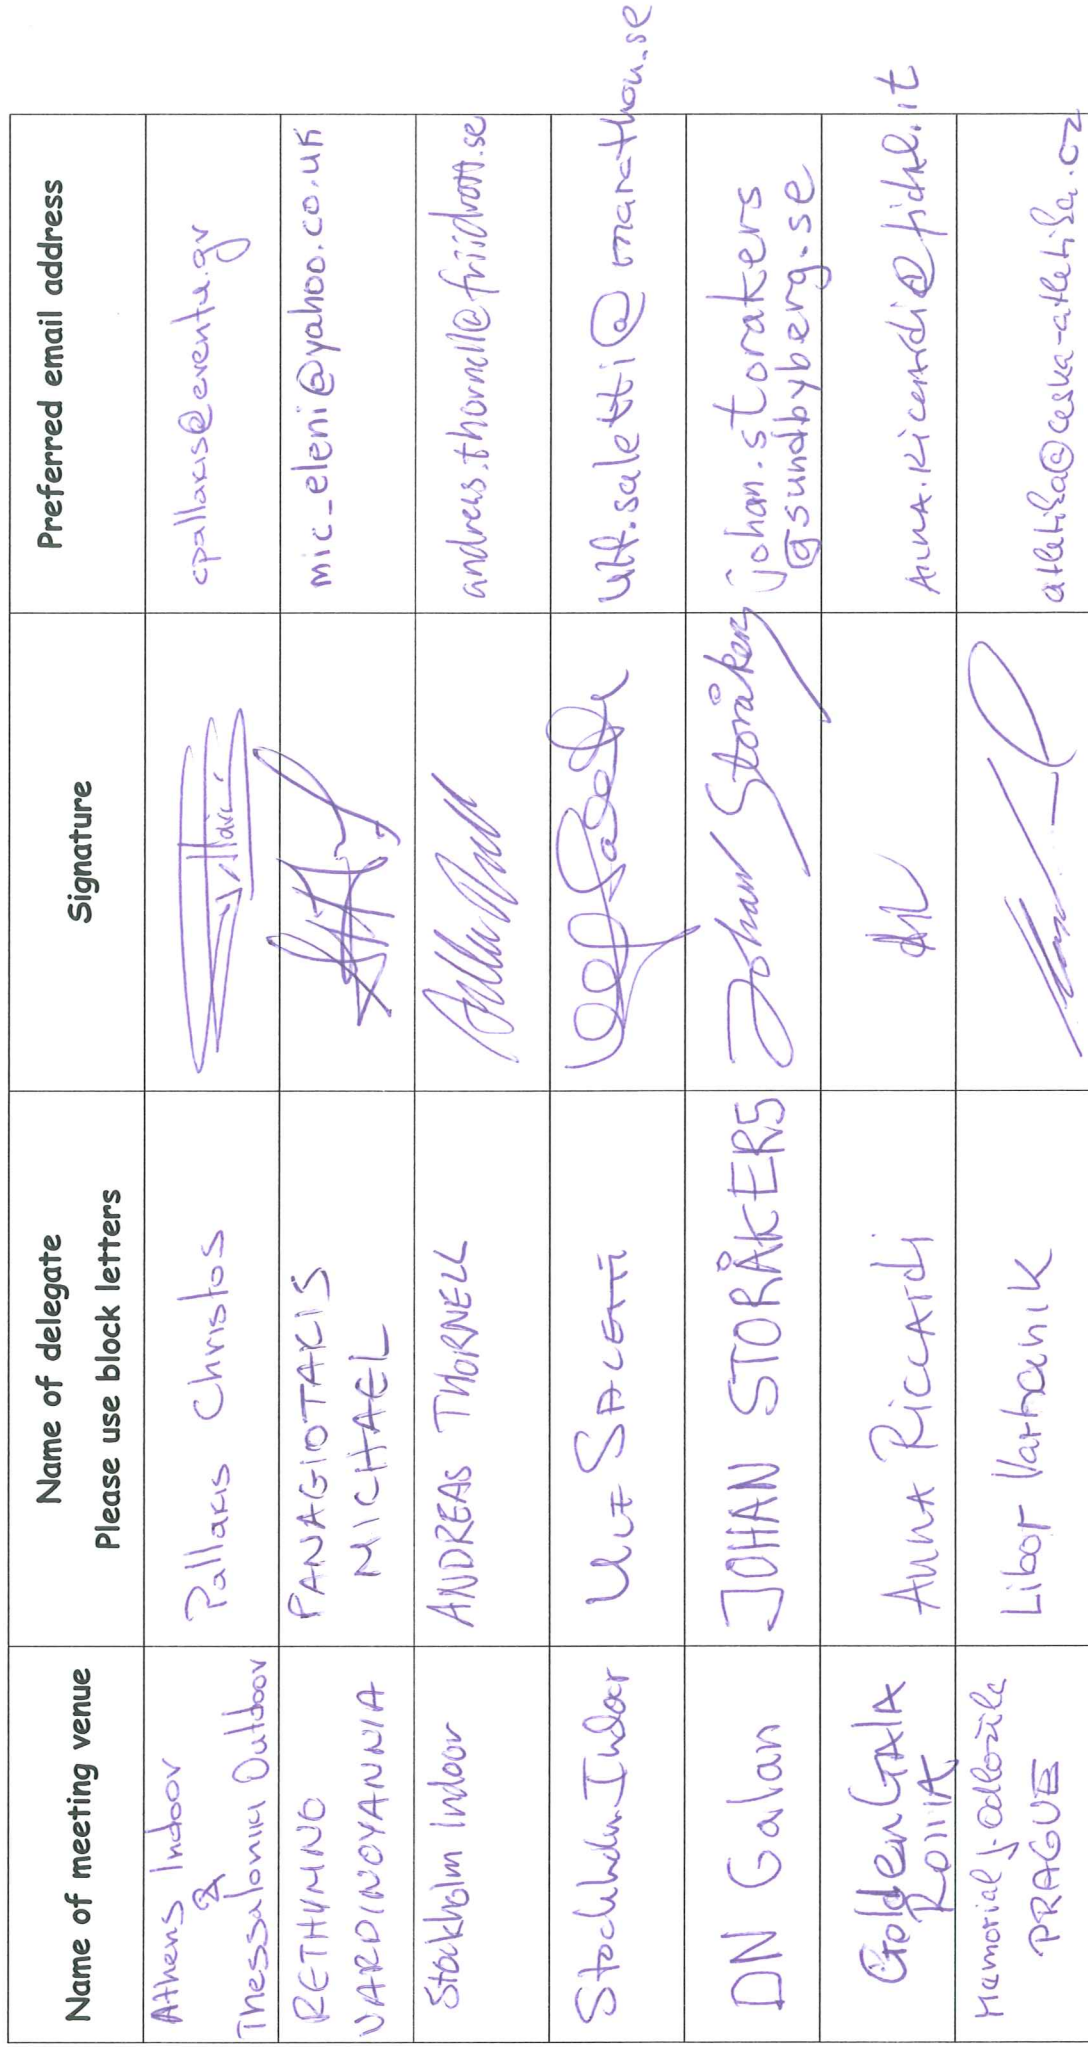 Name of meeting venue
Name of delegate
Please use block letters
Signature
Preferred email address
Athens Indoor
&
Thessaloniki Outdoor
Pallakis Christos
cpallakis@eventu.gr
RETHYMNO
VARDINOYANNIA
PANAGIOTAKIS
MICHAEL
mic_eleni@yahoo.co.uk
Stockholm Indoor
ANDREAS THORNELL
andreas.thornell@friidrott.se
Stockholm Indoor
ULF SALETTI
ulf.saletti@marathon.se
DN Galan
JOHAN STORÅKERS
Johan Storåkers
johan.storakers
@sundbyberg.se
Golden GALA
ROMA
ANNA RiccARdi
ANNA.Riccardi@fidal.it
Memorial J. Odložila
PRAGUE
Libor Varhaník
atletika@ceska-atletika.cz